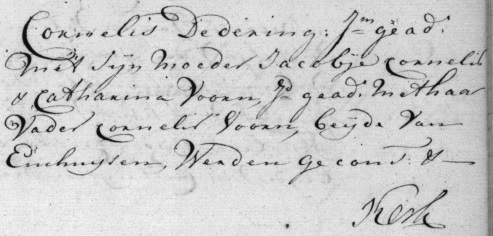 Cornelis Dedering: Jm gead:
met sijn moeder Jacobje Cornelis
& Catharina Voorn, Jd gead: met haar
Vader Cornelis Voorn, beijde van
Enchuijsen, Werden gecons: &
Kerk